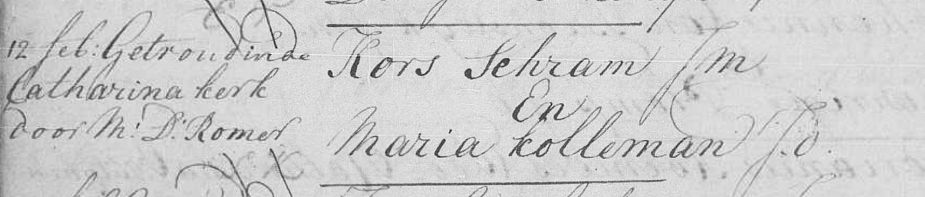 12 feb: Getroud in de
Catharina kerk
door M: D: Romer
Kors Schram J m
En
Maria kolleman J. d.